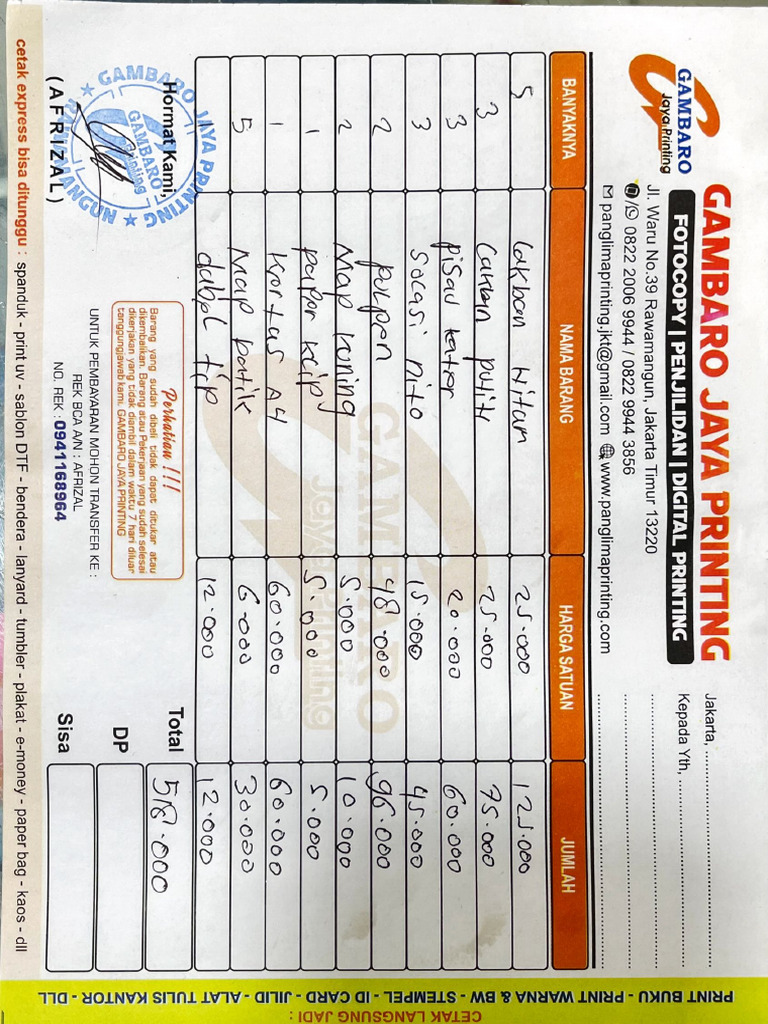 GAMBARO
Jaya Printing
GAMBARO JAYA PRINTING
FOTOCOPY | PENJILIDAN | DIGITAL PRINTING
Jl. Waru No.39 Rawamangun, Jakarta Timur 13220
0822 2006 9944 / 0822 9944 3856
panglimaprinting.jkt@gmail.com www.panglimaprinting.com
Jakarta, ..........
Kepada Yth, ..........
BANYAKNYA NAMA BARANG HARGA SATUAN JUMLAH
5 Lakban Hitam 25.000 125.000
3 Lakban putih 25.000 75.000
3 pisau kater 20.000 60.000
3 Solasi nito 15.000 45.000
2 pulpen 48.000 96.000
2 Map kuning 5.000 10.000
1 papan klip 5.000 5.000
1 Kertas A4 60.000 60.000
5 Map batik 6.000 30.000
dabel tip 12.000 12.000
GAMBARO
Jaya Printing
Total 518.000
DP
Sisa
Hormat Kami,
GAMBARO JAYA PRINTING
GAMBARO
Printing
RAWAMANGUN
(AFRIZAL)
Perhatian !!!
Barang yang sudah dibeli tidak dapat ditukar atau
dikembalikan. Barang atau Pekerjaan yang sudah selesai
dikerjakan yang tidak diambil dalam waktu 7 hari diluar
tanggungjawab kami. GAMBARO JAYA PRINTING
UNTUK PEMBAYARAN MOHON TRANSFER KE :
REK BCA A/N : AFRIZAL
NO. REK : 0941168964
cetak express bisa ditunggu : spanduk - print uv - sablon DTF - bendera - lanyard - tumbler - plakat - e-money - paper bag - kaos - dll
CETAK LANGSUNG JADI :
PRINT BUKU - PRINT WARNA & BW - STEMPEL - ID CARD - JILID - ALAT TULIS KANTOR - DLL